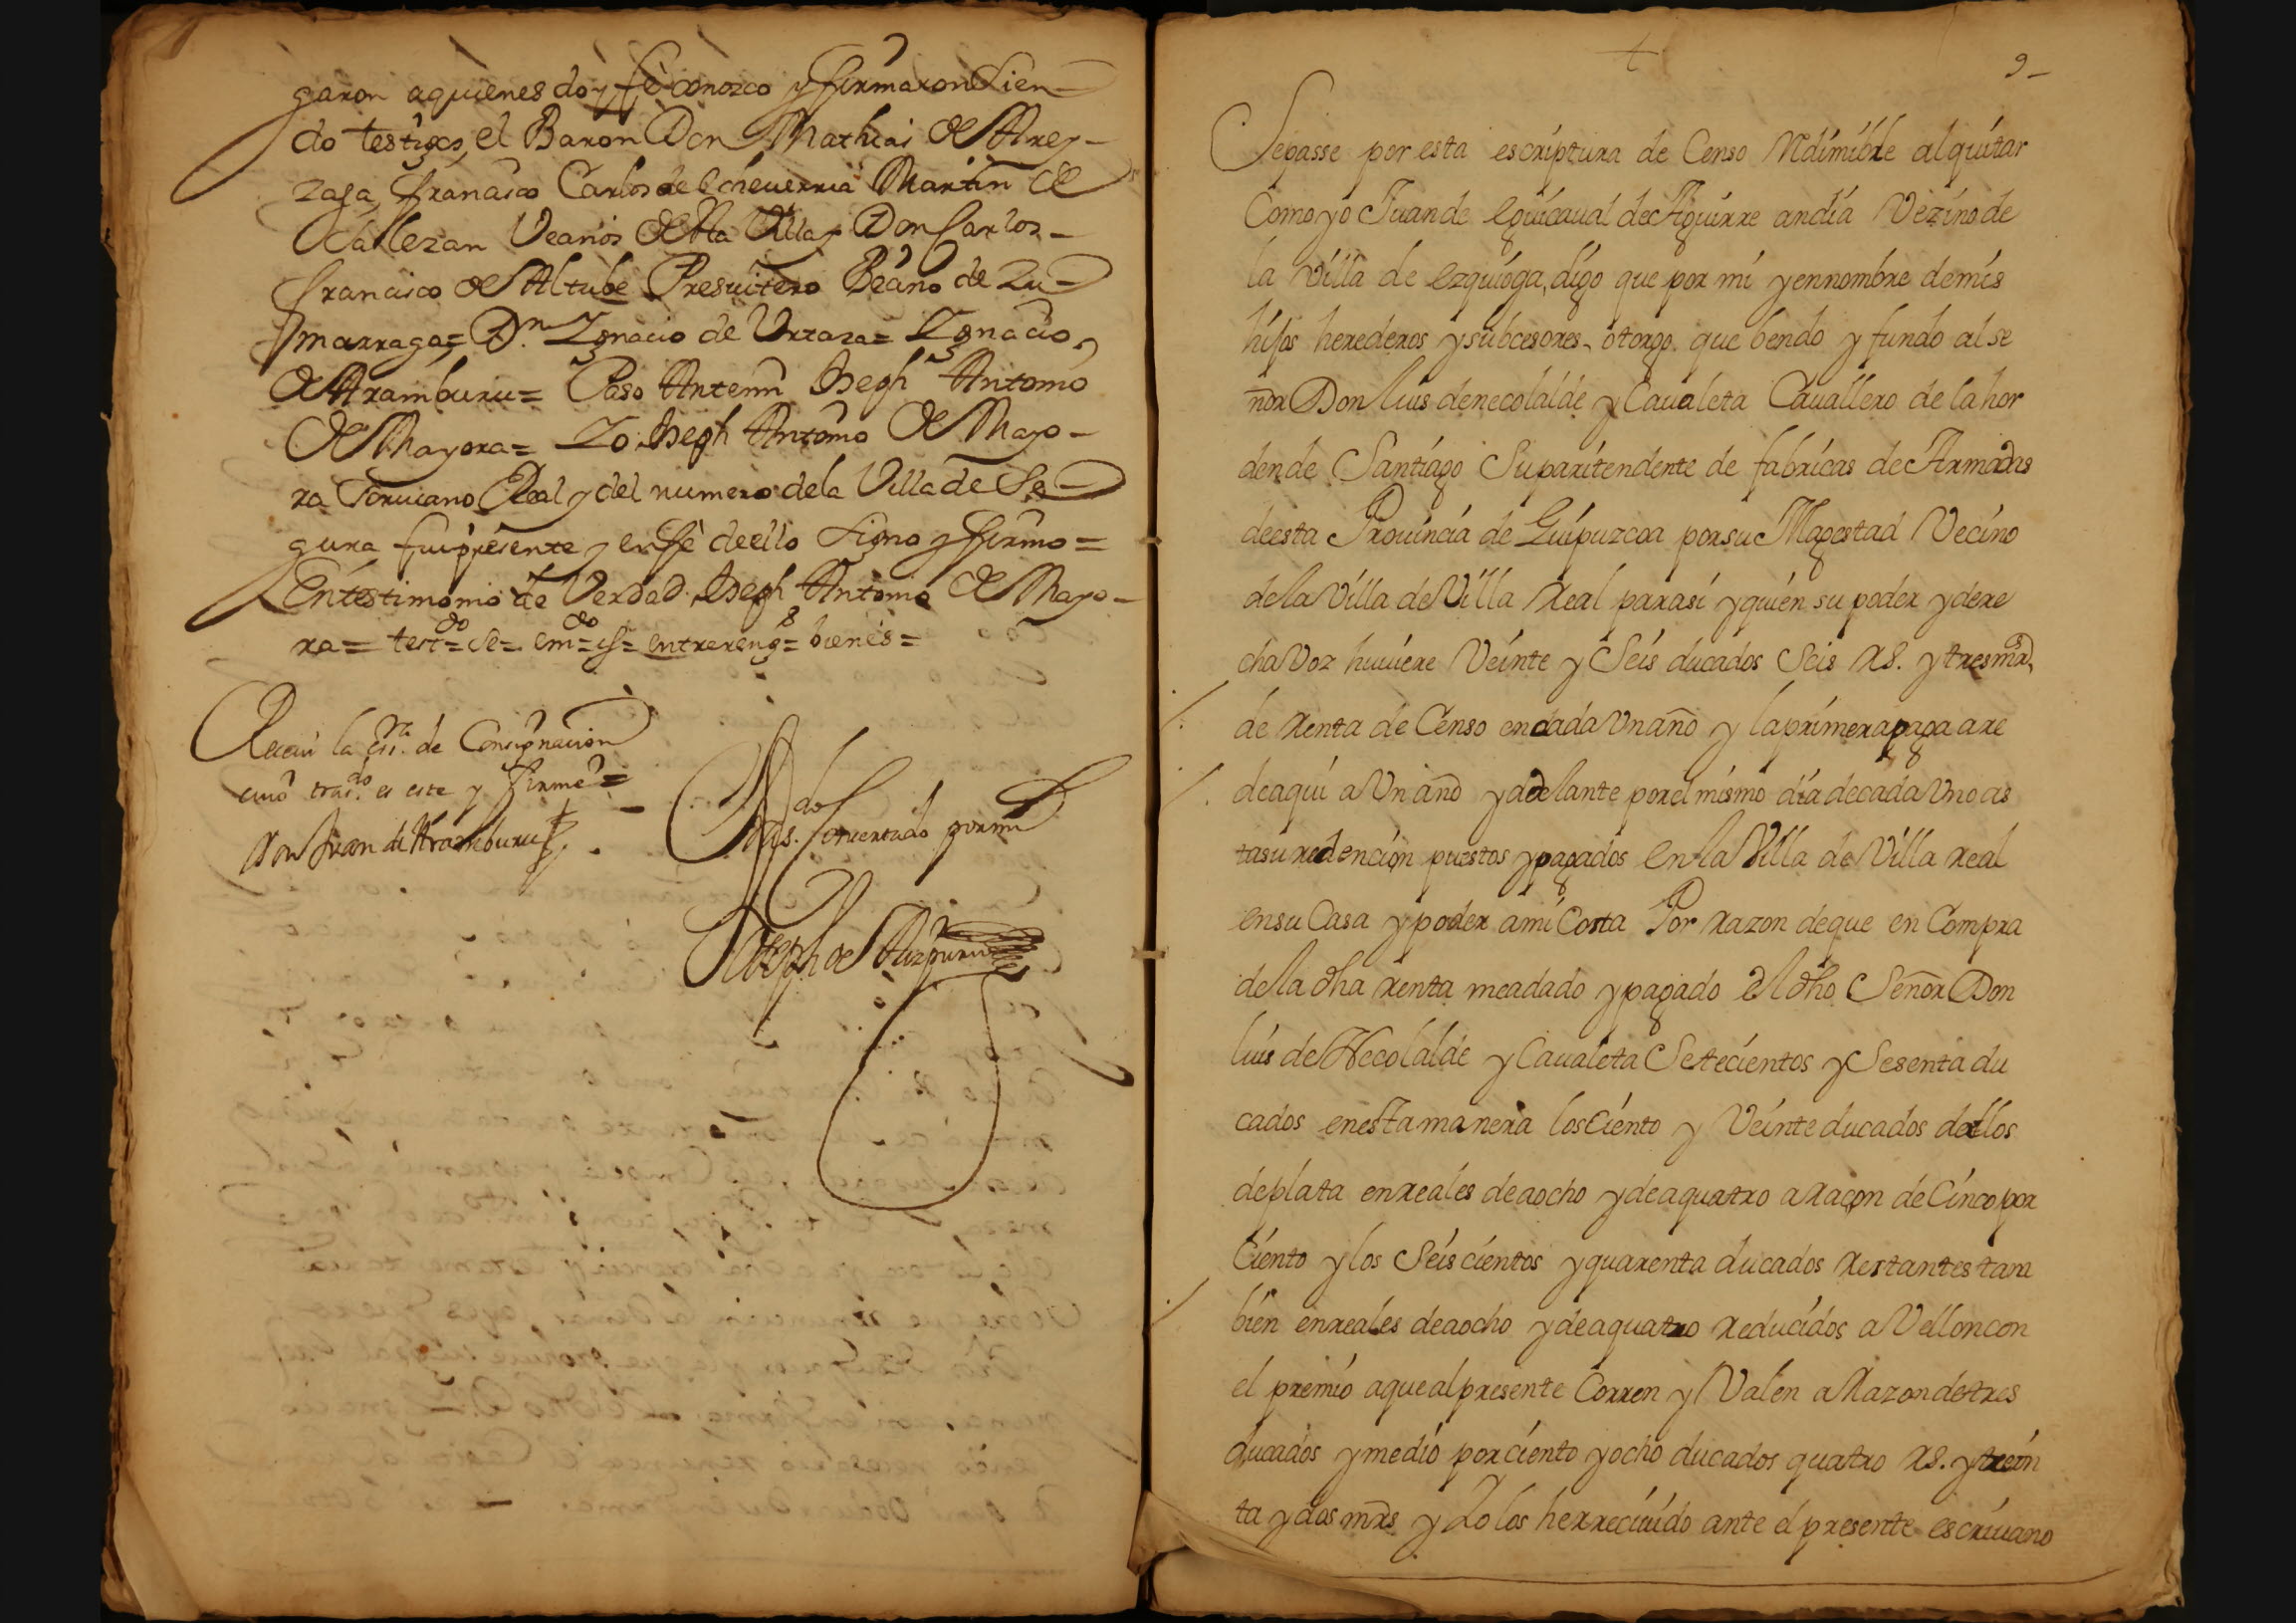 garon aquienes doy fè conozco y firmaron Sien-
do testigos, el Baron Don Mathias de Arey-
zaga, francisco Carlos de echeuerria Martin de
Oallezan Veçinos de sta Villa y Don Carlos-
francisco de Altube Presuitero Beçino de Zu-
marraga= Dn. Ygnacio de Vrraza= Ygnacio,
de Aramburu= Paso Antemi Iseph Antonio
de Mayora= Yo Iseph Antonio de Mayo-
ra Scriuano Real y del numero dela Villa de Se-
gura fui presente y en fè deello Signo y firmo=
En testimonio de Verdad. Iseph Antonio de Mayo-
ra= testdo= se= emdo= if= entrerengs= bienes=
Receui la essra. de Consignacion
cuio trasdo. es este y firmé=
Don Juan de Aramburu
Corregdo
por mi
Joseph de Aizpuru
9-
Sepasse por esta escriptura de Censo Redimible alquitar
Como yo Juan de eguicaual de Aguirre andia Vezino de
la Villa de ezquioga, digo que por mi y ennombre demis
hijos herederos y subcesores, otorgo que bendo y fundo al se
ñor Don luis denecolalde y Caualeta Cauallero de la hor
den de Santiago Suparitendente de fabricas de Armadas
deesta Prouincia de Guipuzcoa porsu Magestad Vecino
dela Villa de Villa Real parasi y quien su poder y dere
cha Voz huuiere Veinte y Seis ducados Seis Rs. y tres mrs,
de Renta de Censo encada Vnaño y laprimera paga are
deaqui a Vn año y adelante porel mismo dia decada Vno as
tasu redencion puestos ypagados en la Villa de Villa Real
ensu Casa y poder ami Costa Por Razon deque en Compra
dela dha Renta meadado y pagado el dho Señor Don
luis de Necolalde y Caualeta Setecientos y Sesenta du
cados enesta manera los Ciento y Veinte ducados dellos
deplata enreales deaocho y deaquatro a Raçon de Cinco por
Ciento y los Seiscientos y quarenta ducados Restantes tam
bien enreales deaocho y deaquatro Reducidos a Velloncon
el premio aquealpresente Corren y Valen a Razon detres
ducados y medio por ciento y ocho ducados quatro Rs. y trein
ta y dos mrs y Yo los herreciuido ante el presente escriuano